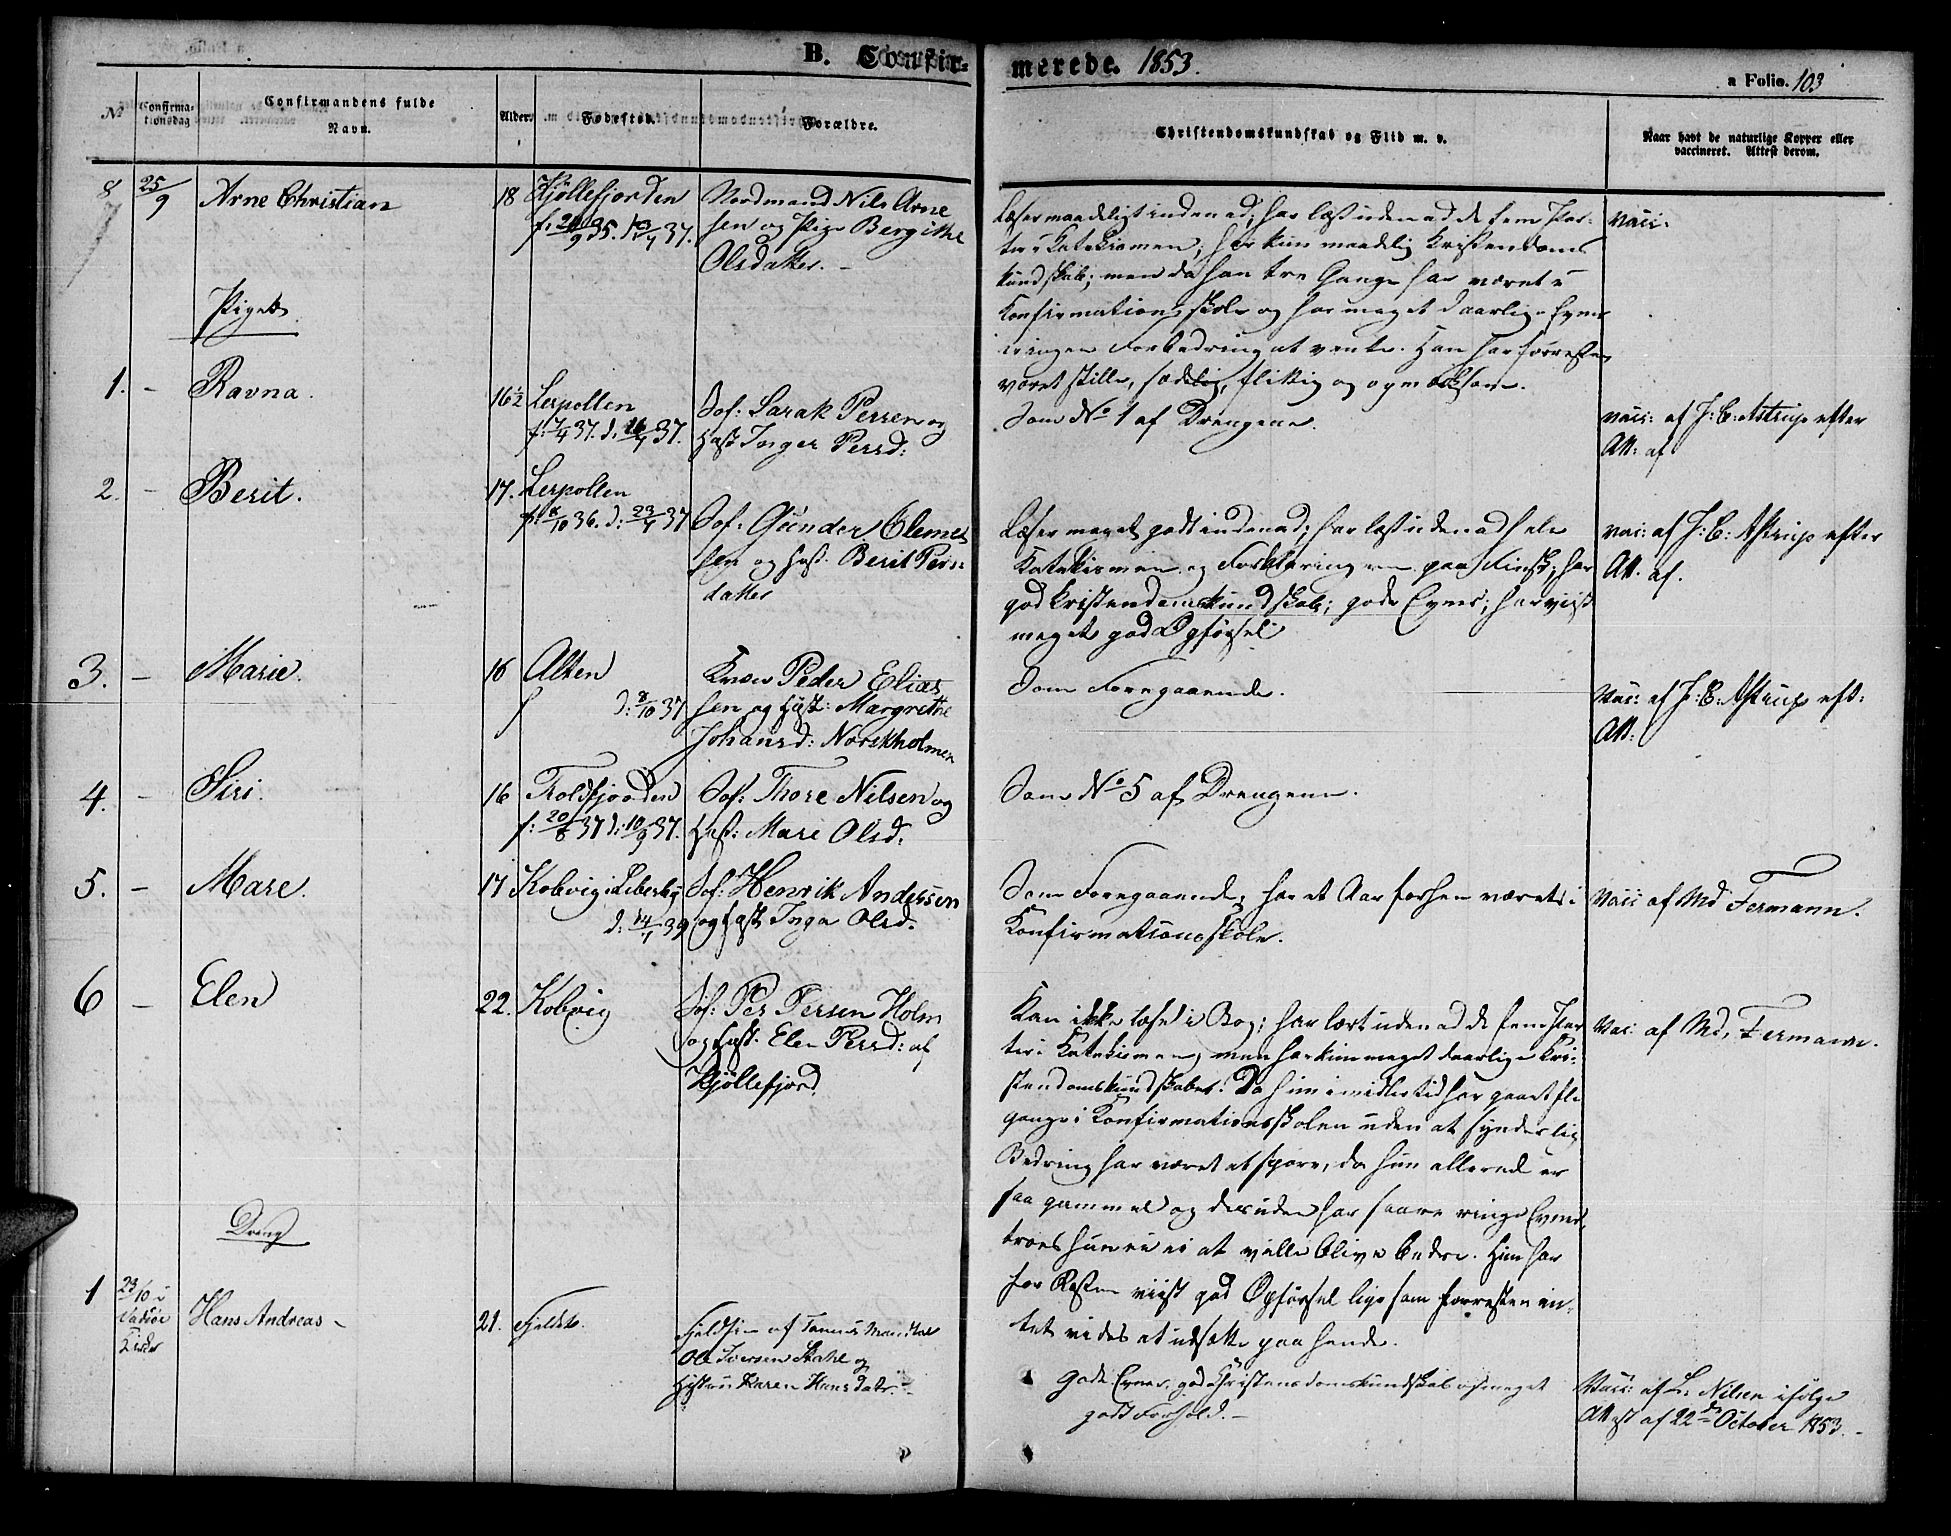 B. Confir-
merede. 1853.
a Folio. 103
№
Confirma-
tionsdag
Confirmandens fulde
Navn.
Alder.
Fødested.
Forældre.
Christendomskundskab og Flid m. v.
Naar havt de naturlige Kopper eller
vaccineret. Attest derom.
8
25/9
Arne Christian
18
Kjöllefjorden
Nordmand Nils Arne
sen og Pige Bergithe
Olsdatter. -
Læser maadeligt indenad; har læst udenad de fem Par-
ter i Katekismen; har kun maadelig Kristendoms
kundskab; men da han tre Gange har været i
Konfirmationsskole og har meget daarlige Evner
er ingen Forbedring at vente. Han har forresten
været stille, sædelig, flittig og opmærksom.
vacc:
Piger
1. -
Ravna.
16½
Lerpollen
f: 7/4 37. d: 16/4 37.
Sof: Sarak Persen og
Hust Inger Persd:
Som No 1 af Drengene.
vacc: af J: C: Astrup efter
Att: af
2. -
Berit.
17.
Lerpollen
f: 8/10 36. d: 23/4 37
Sof: Gunder Clemet
sen og Hust. Berit Pers
datter
Læser meget godt indenad; har læst udenad hele
Katekismen og Forklaringen paa Finsk; har
god Kristendomskundskab; gode Evner; har viist
meget god Opførsel.
vac: af J: C: Astrup efter
Att. af.
3. -
Marie.
16
Alten
f d: 8/10 37
Kvæn Peder Elias
sen og Hust: Margrethe
Johansd: Norskholmen
Som Foregaaende.
Vac: af J: C: Astrup eft:
Att:
4. -
Siri.
16
Troldfjorden
f: 20/8 37 d: 10/9 37.
Sof: Thore Nilsen og
Hust: Mare Olsd.
Som No 5 af Drengene.
5. -
Mare.
17
Kobvig i Lebesby
d: 14/1 39
Sof: Henrik Anderssen
og Hust Inga Olsd.
Som Foregaaende; har et Aar forhen været i
Konfirmationsskole.
Vacc af Md Fermann.
6 -
Elen
22.
Kobvig
Sof: Per Persen Holm
og Hust. Elen Persd: af
Kjöllefjord
Kan ikke læse i Bog; har lært udenad de fem Par
ter i Katekismen, men har kun meget daarlige Kri-
stendomskundskaber. Da hun imidlertid har gaaet fle
gange i Konfirmationsskolen uden at synderlig
Bedring har været at spore, da hun allerede er
saa gammel og desuden har saare ringe Evner,
troes hun ei at ville blive bedre. Hun har
for Resten viist god Opførsel ligesom forresten in-
tet vides at udsætte paa hende.
Vac: af Md, Fermann.
Dreng
1
23/10 i
Vadsøe
Kirke
Hans Andreas -
21.
Fjeldet.
Fjeldfin af
Ole Iversen Stahl og
Hustru Karen Hansdatr. -
gode Evner, god Christendomskundskab og meget
godt Forhold. -
Vacc: af L. Nilsen ifølge
Attest af 22de October 1853. -